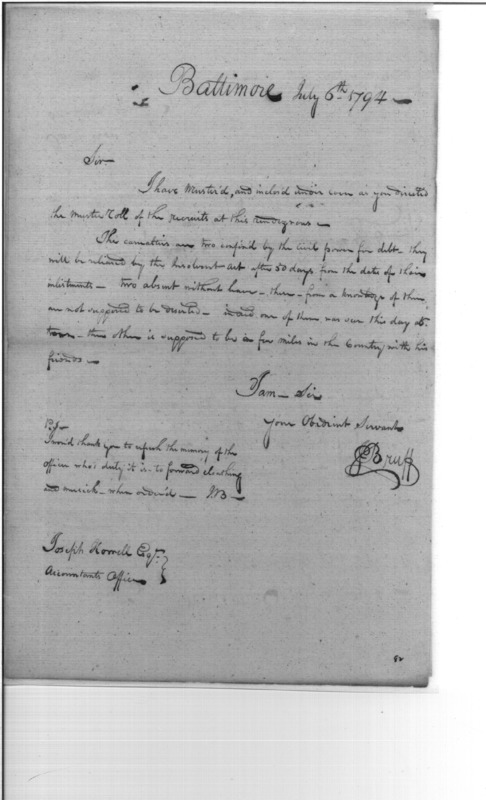 Baltimore July 6th 1794 —
Sir —
I have Muster'd, and inclos'd even as you directed
the muster Roll of the recruits at this rendezvous —
The casualties are two confin'd by the civil power for debt — they
will be releas'd by the Insolvent act after 50 days from the date of their
— two absent without leave — these — from a knowledge of them,
are not supposed to be deserted — indeed one of them was seen this day at
town — the other is supposed to be a few miles in the Country with his
friends —
I am — Sir
Your Obedient Servant
JBruff
P.S —
I would thank you to refresh the memory of the
officer who's duty it is to forward cloathing
and musick — when order'd — JB —
Joseph Howell Esqr.
Accountants Office
82